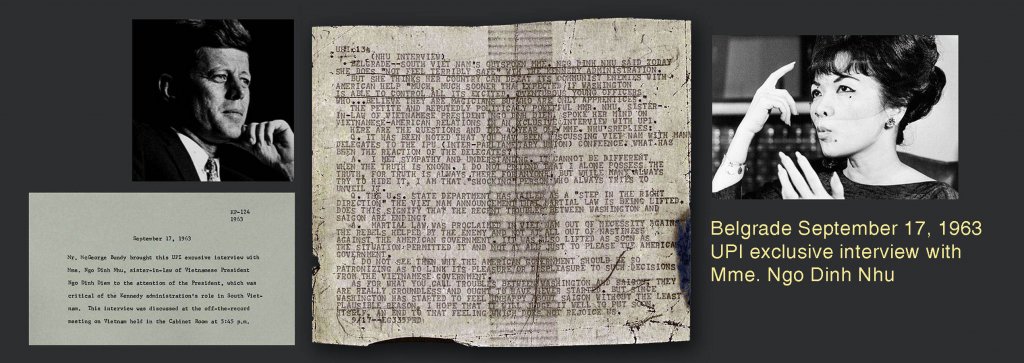 KP-124
1963
September 17, 1963
Mr. McGeorge Bundy brought this UPI exclusive interview with
Mme. Ngo Dinh Nhu, sister-in-law of Vietnamese President
Ngo Dinh Diem to the attention of the President, which was
critical of the Kennedy administration's role in South Viet-
nam. This interview was discussed at the off-the-record
meeting on Vietnam held in the Cabinet Room at 5:45 p.m.
UPI-134
(NHU INTERVIEW)
BELGRADE--SOUTH VIET NAM'S OUTSPOKEN MME. NGO DINH NHU SAID TODAY
SHE DOES "NOT FEEL TERRIBLY SAFE" WITH THE KENNEDY ADMINISTRATION.
BUT SHE THINKS HER COUNTRY CAN DEFEAT ITS COMMUNIST ENEMIES WITH
AMERICAN HELP "MUCH, MUCH SOONER THAN EXPECTED IF WASHINGTON
IS ABLE TO CONTROL ALL ITS EXCITED, ADVENTUROUS YOUNG OFFICERS
WHO...BELIEVE THEY ARE MAGICIANS BUT ARE ONLY APPRENTICES."
THE PETITE AND REPUTEDLY POLITICALLY POWERFUL MME. NHU, SISTER-
IN-LAW OF VIETNAMESE PRESIDENT NGO DINH DIEM, SPOKE HER MIND ON
VIETNAMESE-AMERICAN RELATIONS IN AN EXCLUSIVE INTERVIEW WITH UPI.
HERE ARE THE QUESTIONS AND THE YEAR OLD MME. NHU'S REPLIES:
Q. IT HAS BEEN NOTED THAT YOU HAD BEEN DISCUSSING VIET NAM WITH MANY
DELEGATES TO THE IPU (INTER-PARLIAMENTARY UNION) CONFERENCE. WHAT HAS
BEEN THE REACTION OF THE DELEGATES?
A. I MET SYMPATHY AND UNDERSTANDING. IT CANNOT BE DIFFERENT
WHEN THE TRUTH IS KNOWN. I DO NOT PRETEND THAT I ALONE POSSESS THE
TRUTH, FOR TRUTH IS ALWAYS THERE FOR ANYONE, BUT WHILE MANY ALWAYS
TRY TO HIDE IT, I AM THAT "SHOCKING" PERSON WHO ALWAYS TRIES TO
UNVEIL IT.
Q. THE U.S. STATE DEPARTMENT HAS CALLED A "STEP IN THE RIGHT
DIRECTION" THE VIET NAM ANNOUNCEMENT THAT MARTIAL LAW IS BEING LIFTED.
DOES THIS SIGNIFY THAT THE RECENT TROUBLES BETWEEN WASHINGTON AND
SAIGON ARE ENDED?
A. MARTIAL LAW WAS PROCLAIMED IN VIET NAM OUT OF NECESSITY AGAINST
THE REBELS HELPED BY THE ENEMY AND NOT AT ALL OUT OF NASTINESS
AGAINST THE AMERICAN GOVERNMENT. IT WAS ALSO LIFTED AS SOON AS
THE SITUATION PERMITTED IT AND NOT AT ALL JUST TO PLEASE THE AMERICAN
GOVERNMENT.
I DO NOT SEE THEN WHY THE AMERICAN GOVERNMENT SHOULD BE SO
PATRONIZING AS TO LINK ITS PLEASURE OR DISPLEASURE TO SUCH DECISIONS
FROM THE VIETNAMESE GOVERNMENT.
AS FOR WHAT YOU CALL TROUBLES BETWEEN WASHINGTON AND SAIGON, THEY
ARE REALLY GROUNDLESS AND OUGHT TO HAVE NEVER STARTED. BUT SINCE
WASHINGTON HAS STARTED TO FEEL UNHAPPY ABOUT SAIGON WITHOUT THE LEAST
PLAUSIBLE REASON, I HOPE THAT IT WILL JUDGE IT WELL TO PUT
ITSELF, AN END TO THAT FEELING WHICH DOES NOT REJOICE US.
9/17--EG335PED
Belgrade September 17, 1963
UPI exclusive interview with
Mme. Ngo Dinh Nhu